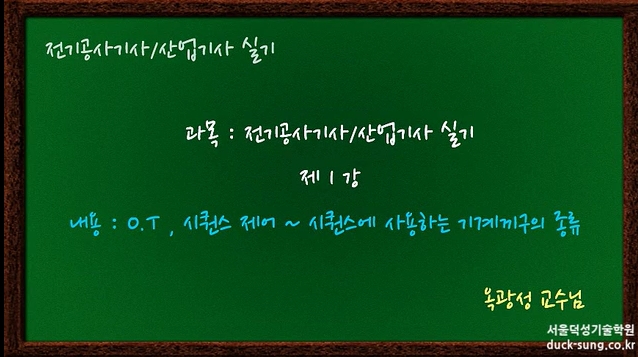 전기공사기사/산업기사 실기
과목 : 전기공사기사/산업기사 실기
제 1 강
내용 : O.T , 시퀀스 제어 ~ 시퀀스에 사용하는 기계끼구의 종류
옥광성 교수님
서울덕성기술학원
duck-sung.co.kr